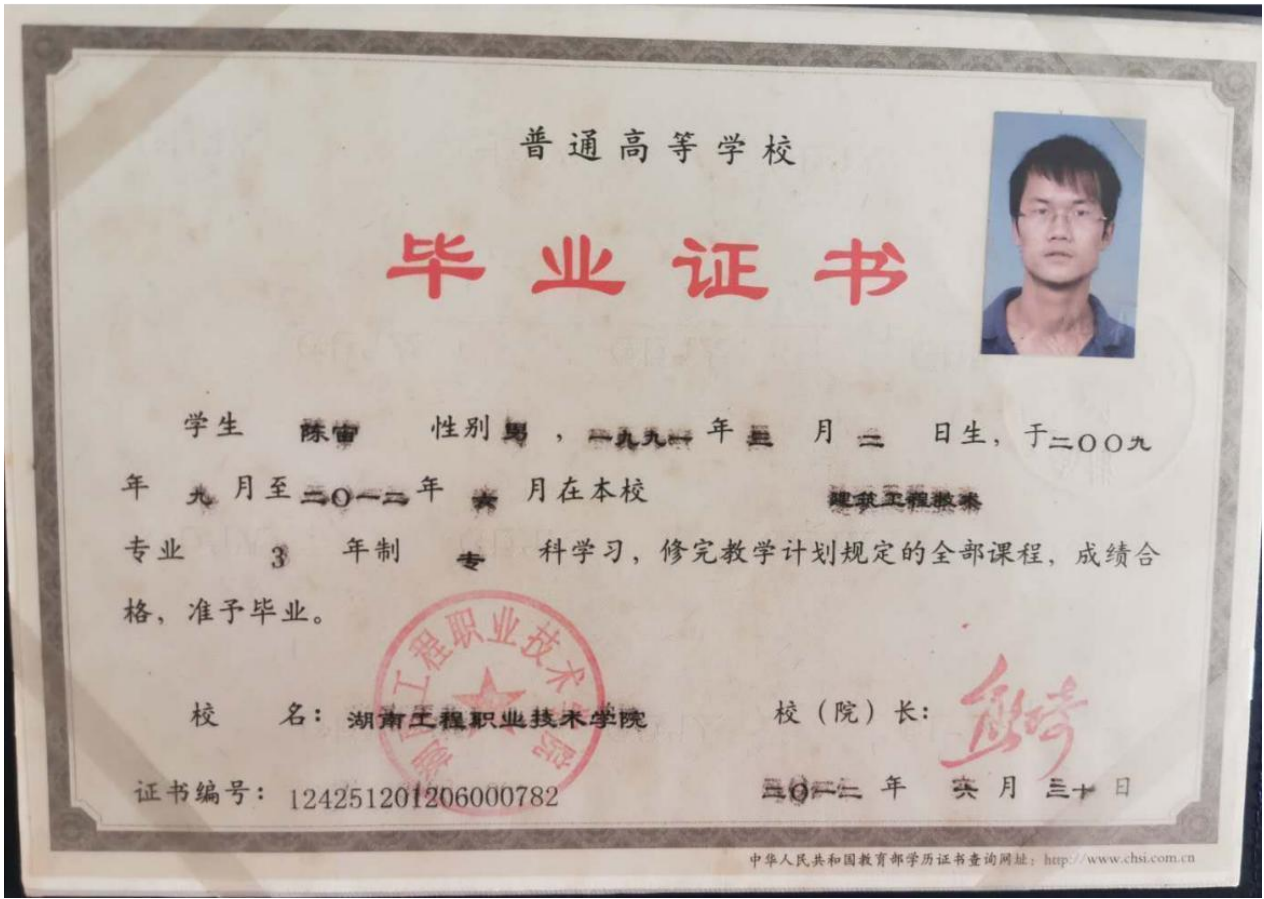 普通高等学校
毕业证书
学生 陈雷 性别 男 ，一九九一 年 三 月 二 日生，于二〇〇九
年 九 月至 二〇一二 年 六 月在本校 建筑工程技术
专业 3 年制 专 科学习，修完教学计划规定的全部课程，成绩合
格，准予毕业。
湖南工程职业技术学院
校 名：湖南工程职业技术学院 校（院）长：
证书编号：124251201206000782 二〇一二 年 六 月 三十 日
中华人民共和国教育部学历证书查询网址：http://www.chsi.com.cn